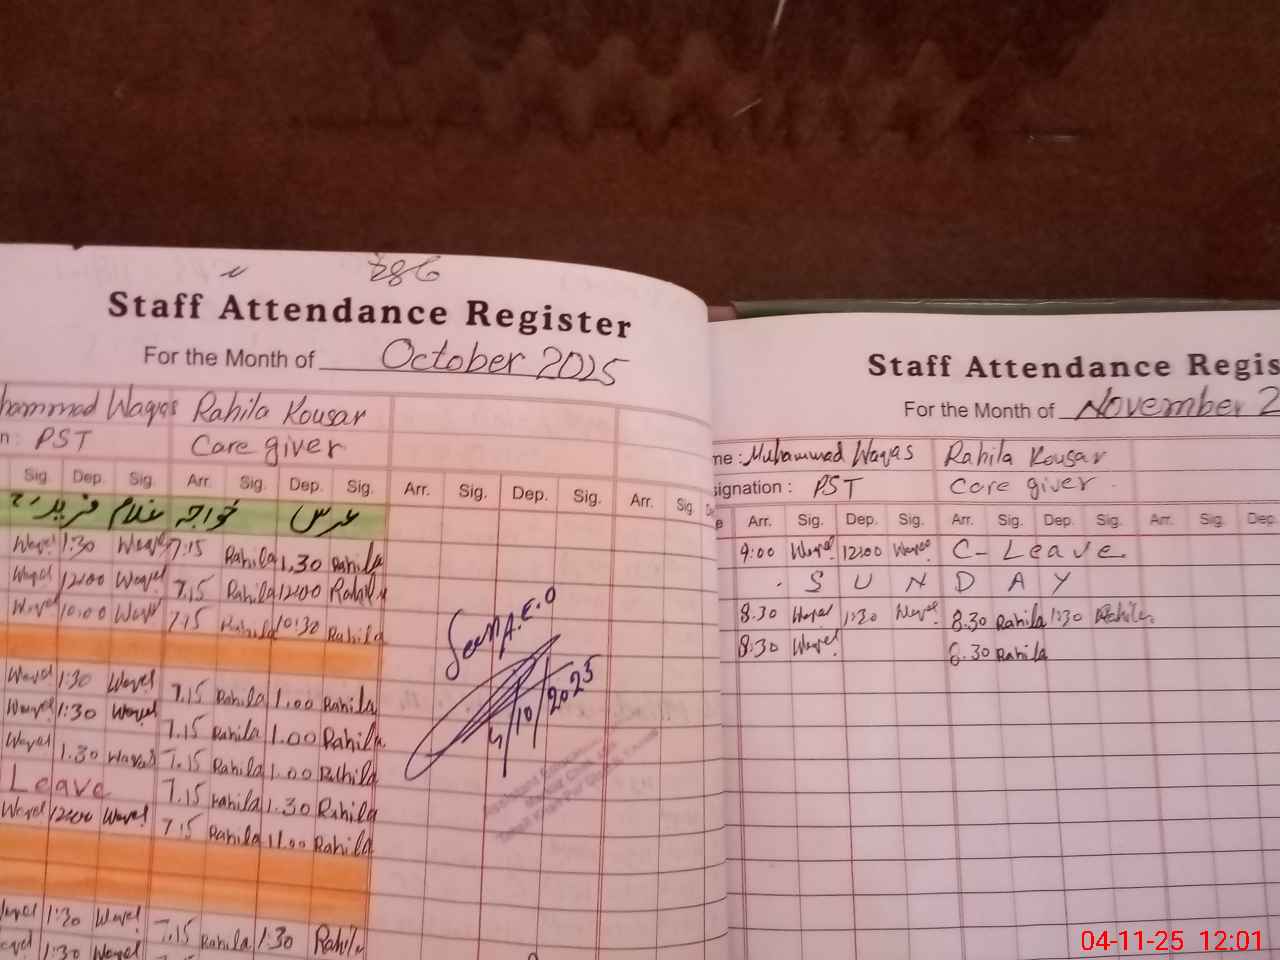 786
Staff Attendance Register
For the Month of October 2025
hammad Waqas Rahila Kousar
n: PST Care giver
Sig. Dep. Sig. Arr. Sig. Dep. Sig. Arr. Sig. Dep. Sig. Arr. Sig.
عرس خواجہ غلام فرید
Waqas 1:30 Waqas 7:15 Rahila 1.30 Rahila
Waqas 12:00 Waqas 7.15 Rahila 12:00 Rahila
Waqas 10:00 Waqas 7.15 Rahila 10:30 Rahila
Seen A.E.O
4/10/2025
Waqas 1:30 Waqas 7.15 Rahila 1.00 Rahila
Waqas 1:30 Waqas 7.15 Rahila 1.00 Rahila
Waqas 1.30 Waqas 7.15 Rahila 1.00 Rahila
Leave 7.15 Rahila 1.30 Rahila
Waqas 12:00 Waqas 7.15 Rahila 11.00 Rahila
Waqas 1:30 Waqas 7.15 Rahila 1:30 Rahila
1:30 Waqas
Staff Attendance Regis
For the Month of November 2
me : Muhammad Waqas Rahila Kousar
signation : PST Care giver
e Arr. Sig. Dep. Sig. Arr. Sig. Dep. Sig. Arr. Sig. Dep.
9:00 Waqas 12:00 Waqas C- Leave
S U N D A Y
8.30 Waqas 1:30 Waqas 8.30 Rahila 1:30 Rahila
8:30 Waqas 8.30 Rahila
04-11-25 12:01